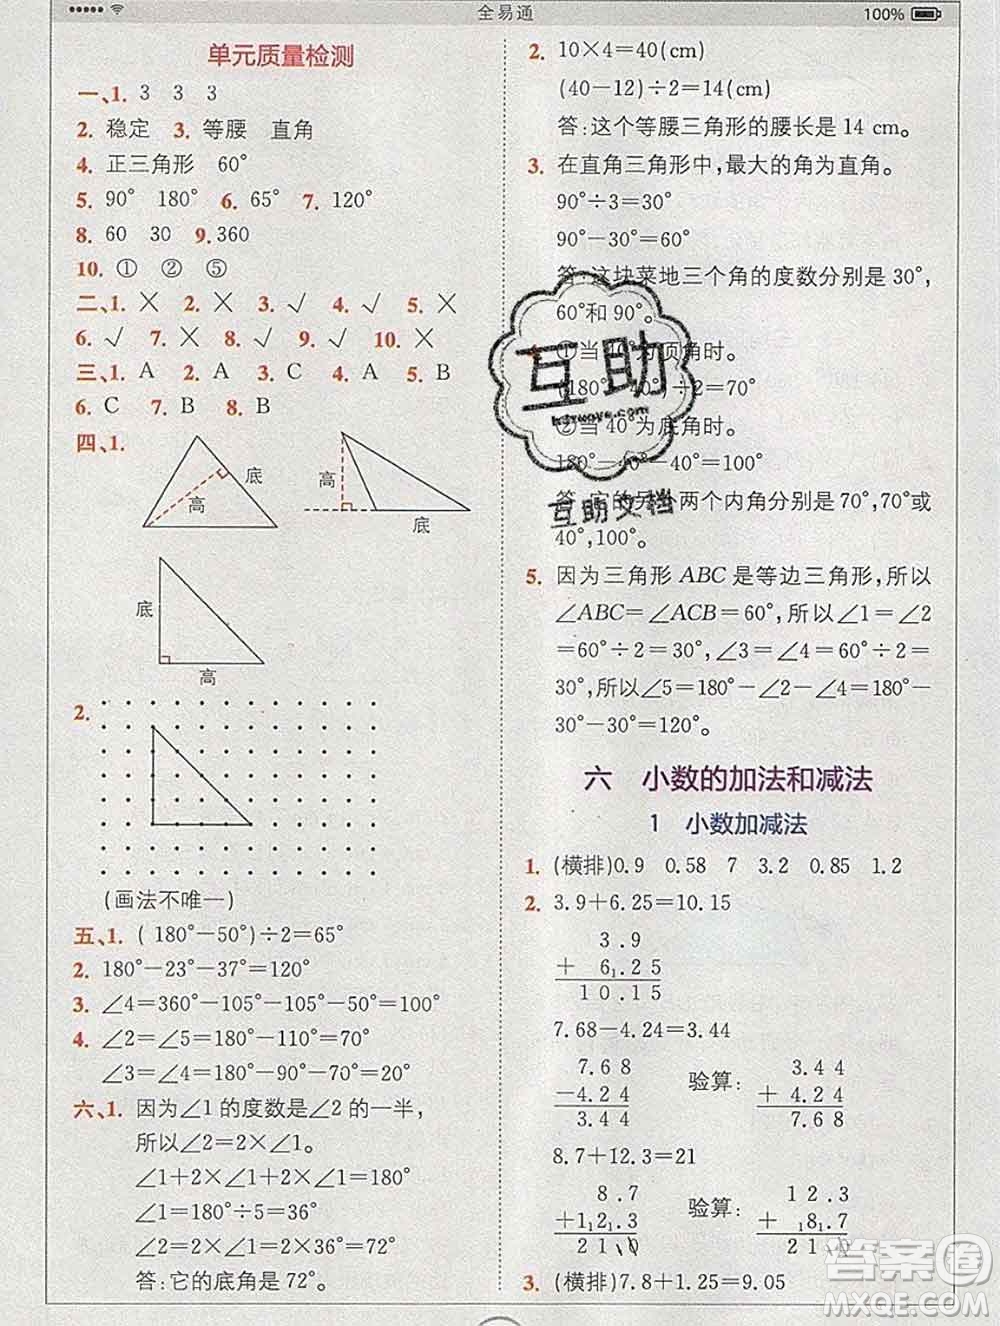 全易通
100%
单元质量检测
一、1. 3 3 3
2. 稳定 3. 等腰 直角
4. 正三角形 60°
5. 90° 180° 6. 65° 7. 120°
8. 60 30 9. 360
10. ① ② ⑤
二、1. × 2. × 3. √ 4. √ 5. ×
6. √ 7. × 8. √ 9. √ 10. ×
三、1. A 2. A 3. B 4. A 5. B
6. C 7. B 8. B
四、1.
底
高
高
底
底
高
2.
(画法不唯一)
五、1. (180°-50°)÷2=65°
2. 180°-23°-37°=120°
3. ∠4=360°-105°-105°-50°=100°
4. ∠2=∠5=180°-110°=70°
∠6=∠3=180°-90°-70°=20°
六、1. 因为∠1的度数是∠2的一半,
所以∠2=2×∠1。
∠1+2×∠1+2×∠1=180°
∠1=180°÷5=36°
∠2=2×∠1=2×36°=72°
答:它的底角是72°。
2. 10×4=40(cm)
(40-12)÷2=14(cm)
答:这个等腰三角形的腰长是14 cm。
3. 在直角三角形中,最大的角为直角。
90°÷3=30°
90°-30°=60°
答:这块菜地三个角的度数分别是30°,
60°和90°。
①当40°为顶角时。
(180°-40°)÷2=70°
②当40°为底角时。
180°-40°-40°=100°
答:它的另外两个内角分别是70°,70°或
40°,100°。
5. 因为三角形ABC是等边三角形,所以
∠ABC=∠ACB=60°,所以∠1=∠2=
60°÷2=30°,∠3=∠4=60°÷2=
30°,所以∠5=180°-∠2-∠4=180°-
30°-30°=120°。
六 小数的加法和减法
1 小数加减法
1. (横排)0.9 0.58 7 3.2 0.85 1.2
2. 3.9+6.25=10.15
3.9
+ 6.25
10.15
7.68-4.24=3.44
7.68
-4.24
3.44
验算:
3.44
+4.24
7.68
8.7+12.3=21
8.7
+12.3
21.0
验算:
12.3
+ 8.7
21.0
3. (横排)7.8+1.25=9.05
互助
互助文档
答案圈
MXQE.COM